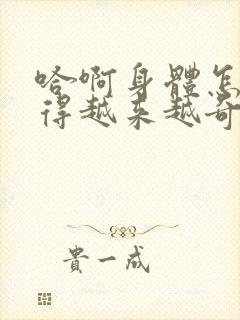 哈啊身體怎
得越来越奇
貴一成